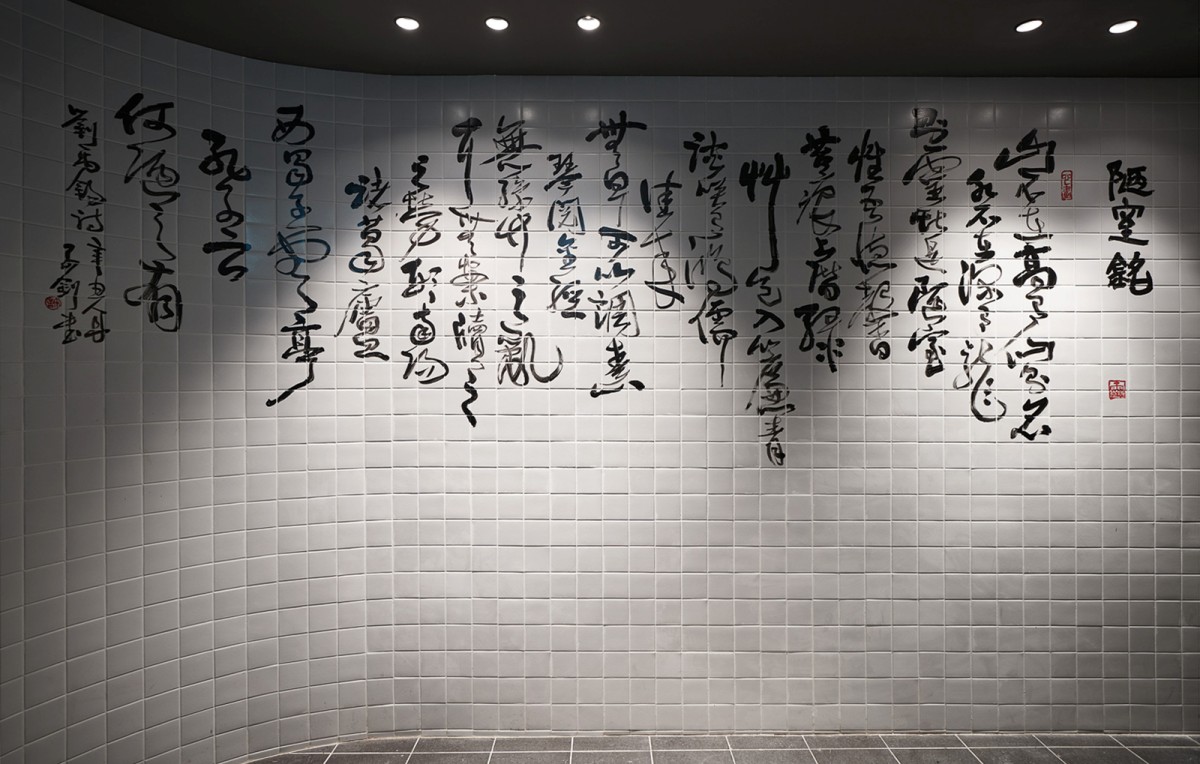 陋室銘
山不在高有仙則名
水不在深有龍
則靈斯是陋室
惟吾德馨
苔痕上階綠
艸色入簾青
談笑有鴻儒
往來
無白丁可以調素
琴閱金經
無絲竹之亂
耳無案牘之
勞形南陽
諸葛廬
西蜀子雲亭
孔子云
何陋之有
劉禹錫詩